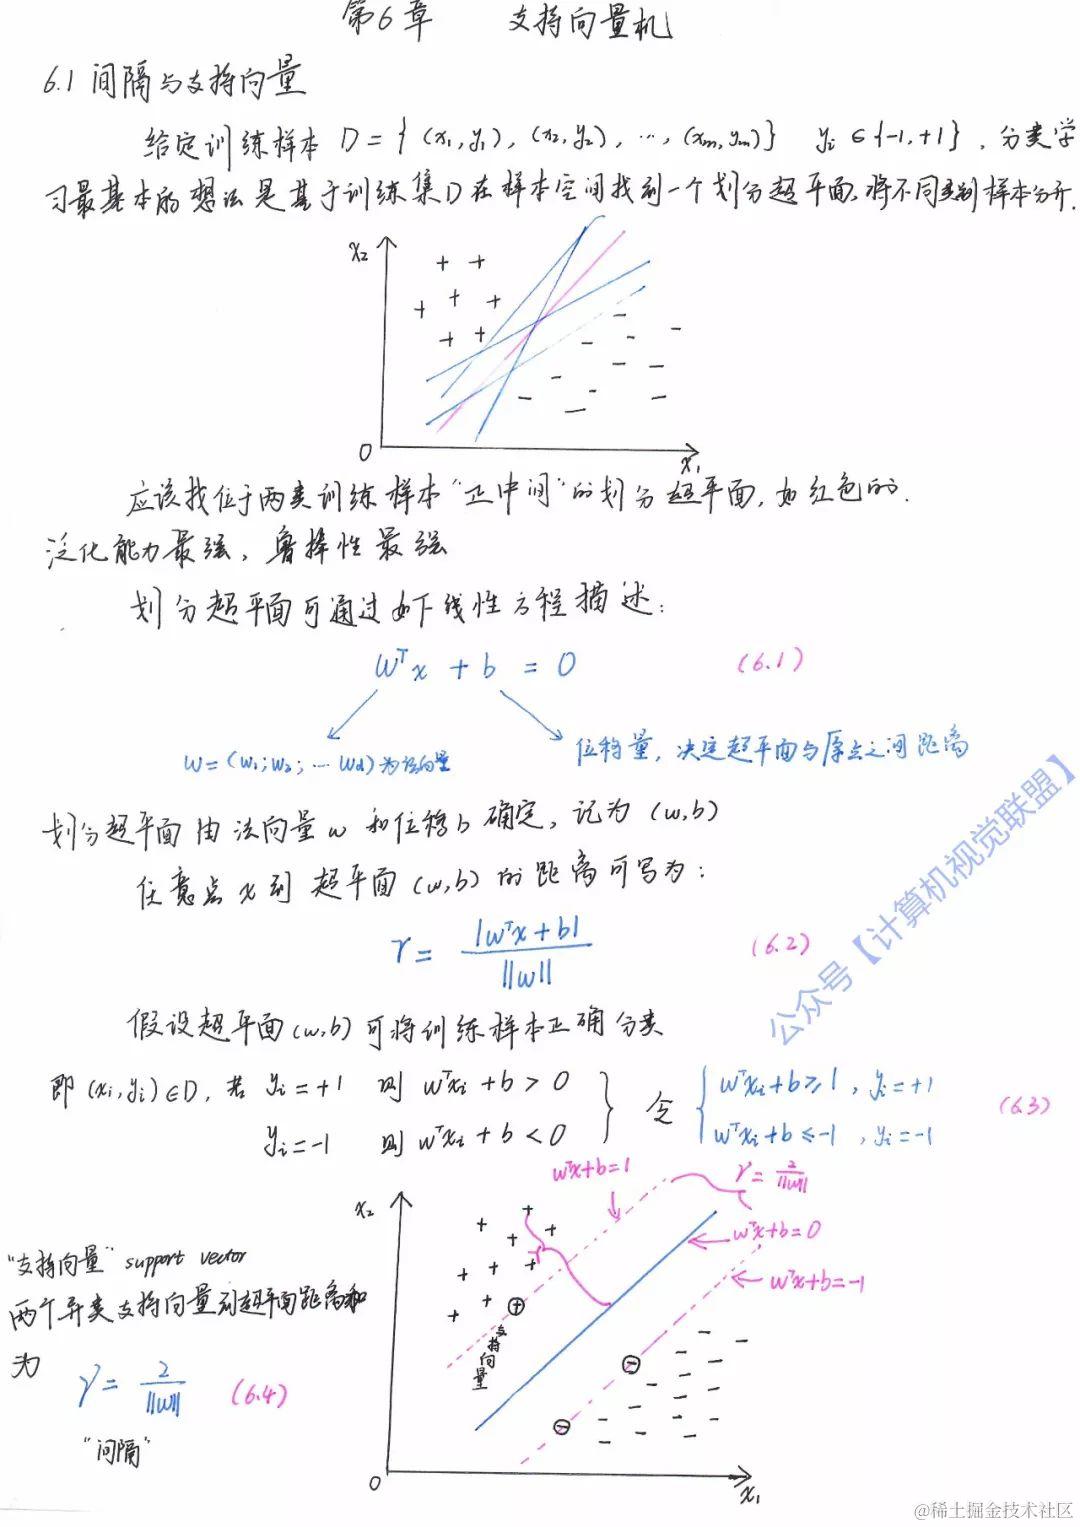 第6章 支持向量机
6.1 间隔与支持向量
给定训练样本 D={(x₁,y₁), (x₂,y₂), ..., (xₘ,yₘ)} yᵢ∈{-1,+1}, 分类学
习最基本的想法是基于训练集D在样本空间找到一个划分超平面,将不同类别样本分开.
x₂
O
x₁
应该找位于两类训练样本"正中间"的划分超平面,如红色的.
泛化能力最强,鲁棒性最强
划分超平面可通过如下线性方程描述:
wᵀx + b = 0 (6.1)
w=(w₁;w₂;...w_d)为法向量
位移量,决定超平面与原点之间距离
划分超平面由法向量w和位移b确定,记为(w,b)
任意点x到超平面(w,b)的距离可写为:
r = |wᵀx+b| / ||w|| (6.2)
假设超平面(w,b)可将训练样本正确分类
即(xᵢ,yᵢ)∈D, 若 yᵢ=+1 则 wᵀxᵢ+b>0 } 令 { wᵀxᵢ+b≥1, yᵢ=+1 (6.3)
yᵢ=-1 则 wᵀxᵢ+b<0 wᵀxᵢ+b≤-1, yᵢ=-1
wᵀx+b=1
γ = 2/||w||
x₂
wᵀx+b=0
wᵀx+b=-1
"支持向量" support vector
两个异类支持向量到超平面距离和
为
γ = 2/||w|| (6.4)
"间隔"
支持向量
r
O
x₁
公众号【计算机视觉联盟】
@稀土掘金技术社区